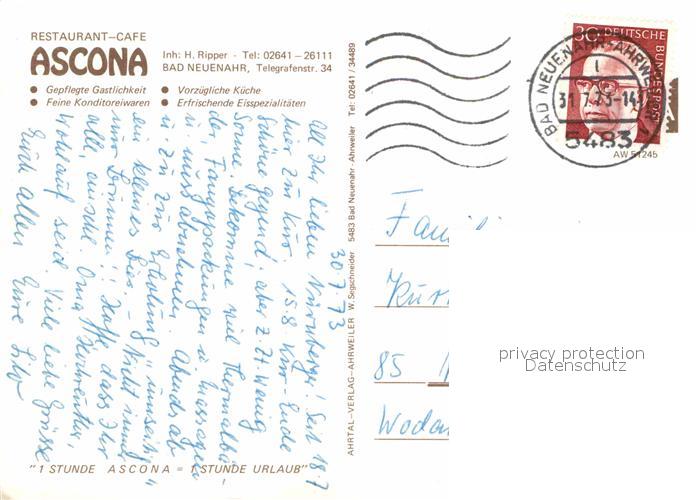 RESTAURANT-CAFE
ASCONA
Inh: H. Ripper - Tel: 02641 - 26111
BAD NEUENAHR, Telegrafenstr. 34
● Gepflegte Gastlichkeit ● Vorzügliche Küche
● Feine Konditoreiwaren ● Erfrischende Eisspezialitäten
30.7.73
All Ihr lieben Nürnberger! Seit 18.7
hier zur Kur. 15.8 Kur-Ende
Schöne Gegend, aber z. Zt. wenig
Sonne. Bekomme viel Thermalbä
der, Fangopackungen u. Massagen
u. muss abnehmen. Abends ab
u. zu zur Erholung
ein kleines Bier. Nicht immer
nur Brunnen! Hoffe dass Ihr
alle, einschl. Oma
wohlauf seid. Viele liebe Grüsse
Euch allen Eure
"1 STUNDE ASCONA = 1 STUNDE URLAUB"
AHRTAL-VERLAG-AHRWEILER W. Segschneider 5483 Bad Neuenahr - Ahrweiler Tel: 02641 / 34489
30 DEUTSCHE BUNDESPOST
BAD NEUENAHR-AHRWEILER
1
31.7.73-14
5483
AW 51245
Fami
Kur
85
Wodan
privacy protection
Datenschutz